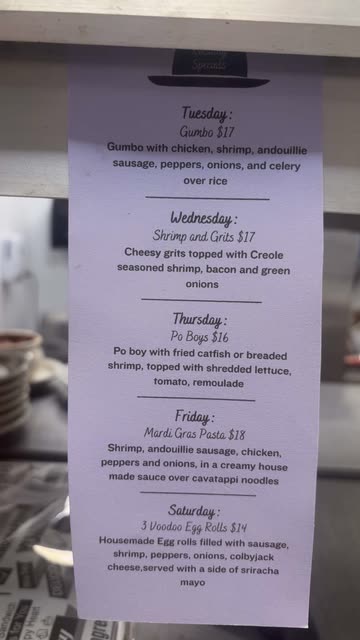 Specials
Tuesday:
Gumbo $17
Gumbo with chicken, shrimp, andouillie
sausage, peppers, onions, and celery
over rice
Wednesday:
Shrimp and Grits $17
Cheesy grits topped with Creole
seasoned shrimp, bacon and green
onions
Thursday:
Po Boys $16
Po boy with fried catfish or breaded
shrimp, topped with shredded lettuce,
tomato, remoulade
Friday:
Mardi Gras Pasta $18
Shrimp, andouillie sausage, chicken,
peppers and onions, in a creamy house
made sauce over cavatappi noodles
Saturday:
3 Voodoo Egg Rolls $14
Housemade Egg rolls filled with sausage,
shrimp, peppers, onions, colbyjack
cheese,served with a side of sriracha
mayo